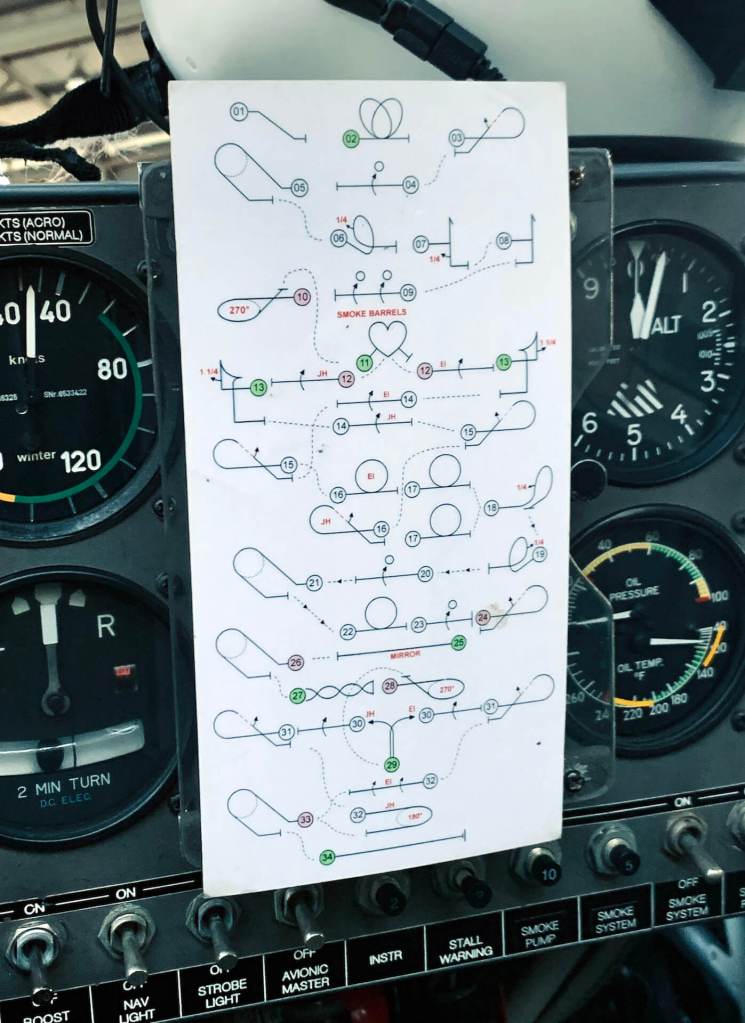 01
02
03
05
04
1/4
06
07
08
1/4
KTS (ACRO)
KTS (NORMAL)
10
270°
09
SMOKE BARRELS
11
1 1/4
1 1/4
13
JH
12
12
EI
13
EI
14
14
JH
15
15
EI
16
17
JH
16
17
18
1/4
1/4
19
20
21
22
23
24
25
MIRROR
26
27
28
270°
JH
EI
31
30
30
31
29
EI
32
JH
32
180°
33
34
40
80
120
knots
SNr.6533422
winter
R
2 MIN TURN
D.C. ELEC.
9
ALT
1
2
3
4
5
6
OIL
PRESSURE
40
100
OIL TEMP.
°F
140
180
200
220
24
260
ON
ON
ON
2
10
5
BOOST
NAV
LIGHT
STROBE
LIGHT
OFF
AVIONIC
MASTER
INSTR
STALL
WARNING
SMOKE
PUMP
SMOKE
SYSTEM
OFF
SMOKE
SYSTEM